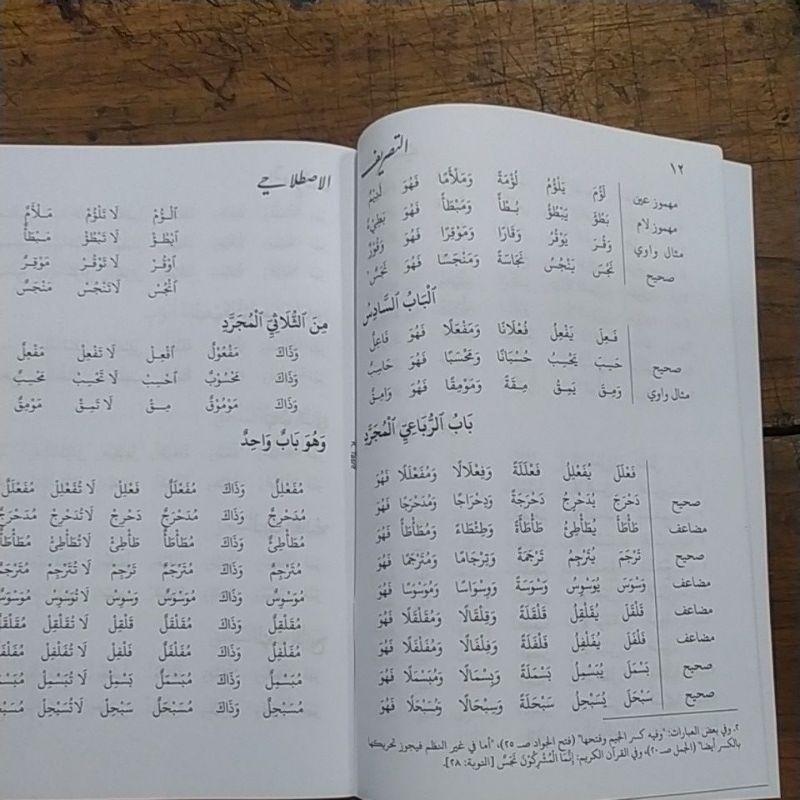 ١٢
التصريف
مهموز عين لَؤُمَ يَلْؤُمُ لُؤْمَةً وَمَلْأَمًا فَهُوَ لَئِيْمٌ
مهموز لام بَطُؤَ يَبْطُؤُ بُطْأً وَمَبْطَأً فَهُوَ بَطِيْءٌ
مثال واوي وَقُرَ يَوْقُرُ وَقَارًا وَمَوْقِرًا فَهُوَ وَقُوْرٌ
صحيح نَجُسَ يَنْجُسُ نَجَاسَةً وَمَنْجَسًا فَهُوَ نَجَسٌ
اَلْبَابُ السَّادِسُ
فَعِلَ يَفْعِلُ فُعْلَانًا وَمَفْعَلًا فَهُوَ فَاعِلٌ
صحيح حَسِبَ يَحْسِبُ حُسْبَانًا وَمَحْسَبًا فَهُوَ حَاسِبٌ
مثال واوي وَمِقَ يَمِقُ مِقَةً وَمَوْمِقًا فَهُوَ وَامِقٌ
بَابُ الرُّبَاعِيِّ الْمُجَرَّدِ
فَعْلَلَ يُفَعْلِلُ فَعْلَلَةً وَفِعْلَالًا وَمُفَعْلَلًا فَهُوَ
صحيح دَحْرَجَ يُدَحْرِجُ دَحْرَجَةً وَدِحْرَاجًا وَمُدَحْرَجًا فَهُوَ
مضاعف طَأْطَأَ يُطَأْطِئُ طَأْطَأَةً وَطِئْطَاءً وَمُطَأْطَأً فَهُوَ
صحيح تَرْجَمَ يُتَرْجِمُ تَرْجَمَةً وَتِرْجَامًا وَمُتَرْجَمًا فَهُوَ
مضاعف وَسْوَسَ يُوَسْوِسُ وَسْوَسَةً وَوِسْوَاسًا وَمُوَسْوَسًا فَهُوَ
مضاعف قَلْقَلَ يُقَلْقِلُ قَلْقَلَةً وَقِلْقَالًا وَمُقَلْقَلًا فَهُوَ
مضاعف فَلْفَلَ يُفَلْفِلُ فَلْفَلَةً وَفِلْفَالًا وَمُفَلْفَلًا فَهُوَ
صحيح بَسْمَلَ يُبَسْمِلُ بَسْمَلَةً وَبِسْمَالًا وَمُبَسْمَلًا فَهُوَ
صحيح سَبْحَلَ يُسَبْحِلُ سَبْحَلَةً وَسِبْحَالًا وَمُسَبْحَلًا فَهُوَ
٢. وفي بعض العبارات: "وفيه كسر الجيم وفتحها" (فتح الجواد صـ ٢٥)، "أما في غير النظم فيجوز تحريكها
بالكسر أيضا" (الجمل صـ ٢٠)، وفي القرآن الكريم: إِنَّمَا الْمُشْرِكُوْنَ نَجَسٌ [التوبة: ٢٨].
الاصطلاحي
اُلْؤُمْ لَا تَلْؤُمْ مَلْأَمٌ
اُبْطُؤْ لَا تَبْطُؤْ مَبْطَأٌ
اُوْقُرْ لَا تَوْقُرْ مَوْقِرٌ
اُنْجُسْ لَا تَنْجُسْ مَنْجَسٌ
مِنَ الثُّلَاثِيِّ الْمُجَرَّدِ
وَذَاكَ مَفْعُوْلٌ اِفْعِلْ لَا تَفْعِلْ مَفْعِلٌ
وَذَاكَ مَحْسُوْبٌ اِحْسِبْ لَا تَحْسِبْ مَحْسِبٌ
وَذَاكَ مَوْمُوْقٌ مِقْ لَا تَمِقْ مَوْمِقٌ
وَهُوَ بَابٌ وَاحِدٌ
مُفَعْلِلٌ وَذَاكَ مُفَعْلَلٌ فَعْلِلْ لَا تُفَعْلِلْ مُفَعْلَلٌ
مُدَحْرِجٌ وَذَاكَ مُدَحْرَجٌ دَحْرِجْ لَا تُدَحْرِجْ مُدَحْرَجٌ
مُطَأْطِئٌ وَذَاكَ مُطَأْطَأٌ طَأْطِئْ لَا تُطَأْطِئْ مُطَأْطَأٌ
مُتَرْجِمٌ وَذَاكَ مُتَرْجَمٌ تَرْجِمْ لَا تُتَرْجِمْ مُتَرْجَمٌ
مُوَسْوِسٌ وَذَاكَ مُوَسْوَسٌ وَسْوِسْ لَا تُوَسْوِسْ مُوَسْوَسٌ
مُقَلْقِلٌ وَذَاكَ مُقَلْقَلٌ قَلْقِلْ لَا تُقَلْقِلْ
مُفَلْفِلٌ وَذَاكَ مُفَلْفَلٌ فَلْفِلْ لَا تُفَلْفِلْ
مُبَسْمِلٌ وَذَاكَ مُبَسْمَلٌ بَسْمِلْ لَا تُبَسْمِلْ
مُسَبْحِلٌ وَذَاكَ مُسَبْحَلٌ سَبْحِلْ لَا تُسَبْحِلْ